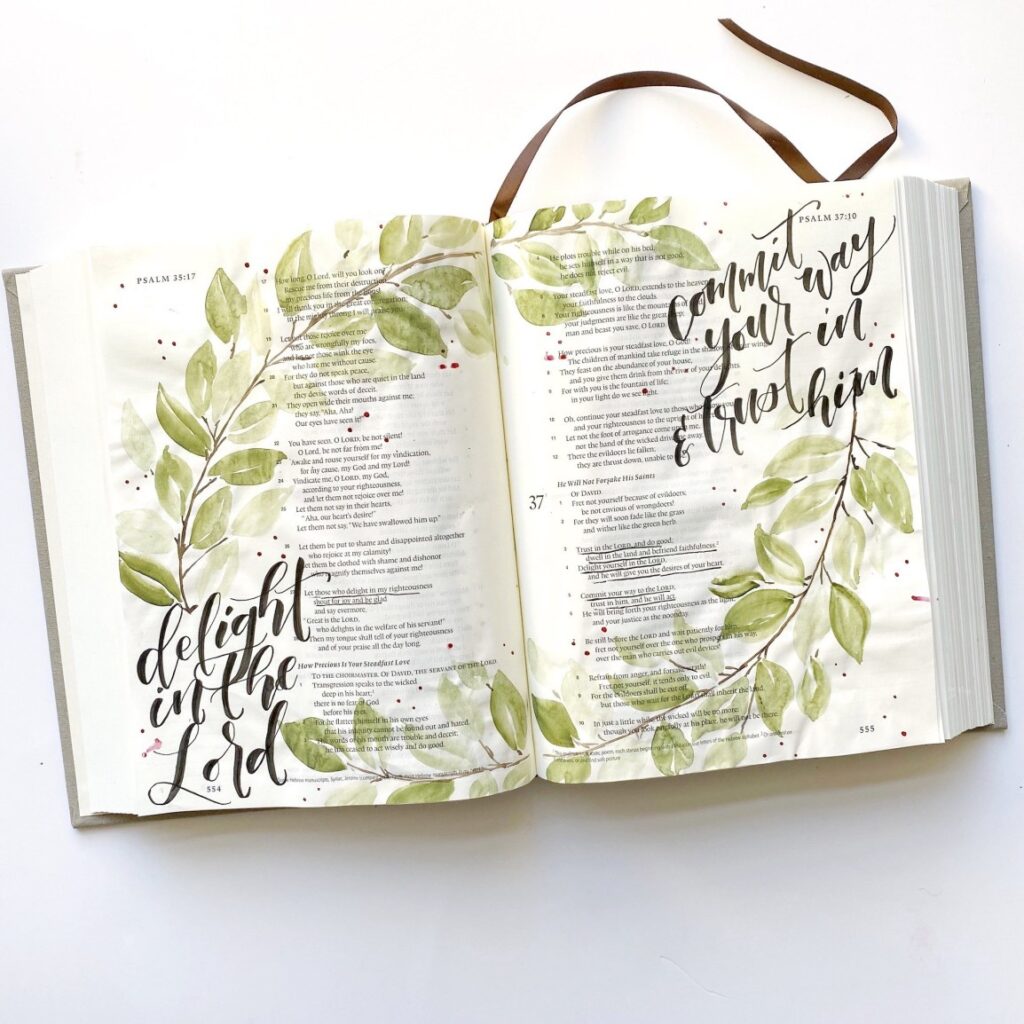 PSALM 35:17
17 How long, O Lord, will you look on?
Rescue me from their destruction,
my precious life from the lions!
18 I will thank you in the great congregation;
in the mighty throng I will praise you.
19 Let not those rejoice over me
who are wrongfully my foes,
and let not those wink the eye
who hate me without cause.
20 For they do not speak peace,
but against those who are quiet in the land
they devise words of deceit.
21 They open wide their mouths against me;
they say, "Aha, Aha!
Our eyes have seen it!"
22 You have seen, O LORD; be not silent!
O Lord, be not far from me!
23 Awake and rouse yourself for my vindication,
for my cause, my God and my Lord!
24 Vindicate me, O LORD, my God,
according to your righteousness,
and let them not rejoice over me!
25 Let them not say in their hearts,
"Aha, our heart's desire!"
Let them not say, "We have swallowed him up."
26 Let them be put to shame and disappointed altogether
who rejoice at my calamity!
Let them be clothed with shame and dishonor
who magnify themselves against me!
27 Let those who delight in my righteousness
shout for joy and be glad
and say evermore,
"Great is the LORD,
who delights in the welfare of his servant!"
28 Then my tongue shall tell of your righteousness
and of your praise all the day long.
How Precious Is Your Steadfast Love
TO THE CHOIRMASTER. OF DAVID, THE SERVANT OF THE LORD.
Transgression speaks to the wicked
deep in his heart;
there is no fear of God
before his eyes.
2 For he flatters himself in his own eyes
that his iniquity cannot be found out and hated.
3 The words of his mouth are trouble and deceit;
he has ceased to act wisely and do good.
delight
in the
Lord
554
PSALM 37:10
He plots trouble while on his bed;
he sets himself in a way that is not good;
he does not reject evil.
5 Your steadfast love, O LORD, extends to the heavens,
your faithfulness to the clouds.
6 Your righteousness is like the mountains
your judgments are like the great deep;
man and beast you save, O LORD.
7 How precious is your steadfast love, O God!
The children of mankind take refuge in the shadow of your wings.
8 They feast on the abundance of your house,
and you give them drink from the river of your delights.
9 For with you is the fountain of life;
in your light do we see light.
10 Oh, continue your steadfast love to those who
and your righteousness to the upright of heart!
11 Let not the foot of arrogance come upon me,
nor the hand of the wicked drive me away.
12 There the evildoers lie fallen;
they are thrust down, unable to
commit
your way
& trust in
him
He Will Not Forsake His Saints
37 OF DAVID.
1 Fret not yourself because of evildoers;
be not envious of wrongdoers!
2 For they will soon fade like the grass
and wither like the green herb.
3 Trust in the LORD, and do good;
dwell in the land and befriend faithfulness.
4 Delight yourself in the LORD,
and he will give you the desires of your heart.
5 Commit your way to the LORD;
trust in him, and he will act.
6 He will bring forth your righteousness as the light,
and your justice as the noonday.
7 Be still before the LORD and wait patiently for him;
fret not yourself over the one who prospers in his way,
over the man who carries out evil devices!
8 Refrain from anger, and forsake wrath!
Fret not yourself; it tends only to evil.
9 For the evildoers shall be cut off,
but those who wait for the LORD shall inherit the land.
10 In just a little while, the wicked will be no more;
though you look carefully at his place, he will not be there.
555